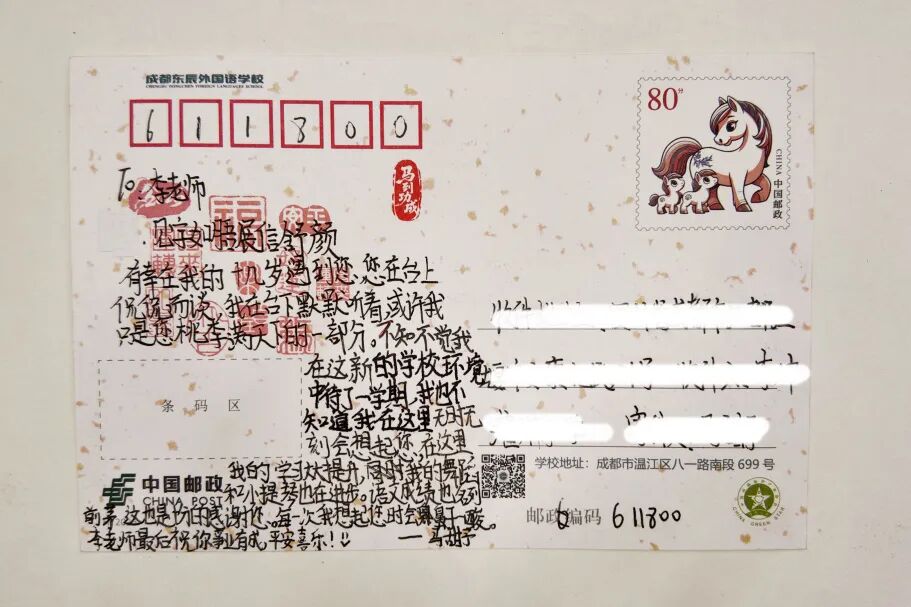 成都东辰外国语学校
CHENGDU DONGCHEN FOREIGN LANGUAGES SCHOOL
611800
80分
CHINA
中国邮政
马到功成
To 李老师
见字如晤展信舒颜
有幸在我的十几岁遇到您,您在台上
侃侃而谈,我在台下默默听着,或许我
只是您桃李满天下的一部分。不知不觉我
在这新的学校环境
中待了一学期,我也不
知道,我在这里无时无
刻会想起您,在这里
我的学习大大提升,同时我的舞蹈
和小提琴也在进步。语文成绩也名列
前茅,这也是份感谢您。每一次我想起您时会鼻一酸。
李老师最后祝你事业有成,平安喜乐!
——马甜子
条码区
中国邮政
CHINA POST
学校地址:成都市温江区八一路南段 699 号
邮政编码 611800
CHINA GREEN STAR